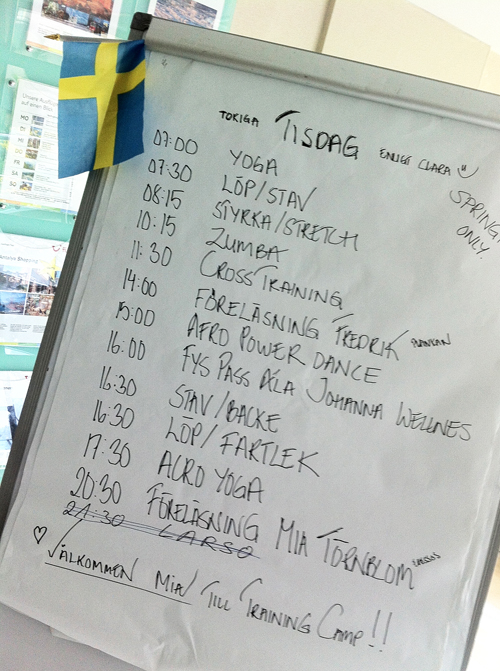 TOKIGA TISDAG ENLIGT CLARA
SPRING!
ONLY.
07:00 YOGA
07:30 LÖP/STAV
08:15 STYRKA/STRETCH
10:15 ZUMBA
11:30 CROSSTRAINING
14:00 FÖRELÄSNING FREDRIK
15:00 AFRO POWER DANCE
16:00 FYS PASS ÁLA JOHANNA WELLNES
16:30 STAV/BACKE
16:30 LÖP/FARTLEK
17:30 ACRO YOGA
20:30 FÖRELÄSNING MIA TÖRNBLOM
21:30 LARSO
VÄLKOMMEN MIA TILL TRAINING CAMP!!
Unsere Ausflüge
auf einen Blick
MO
DI
MI
DO
FR
SA
SO